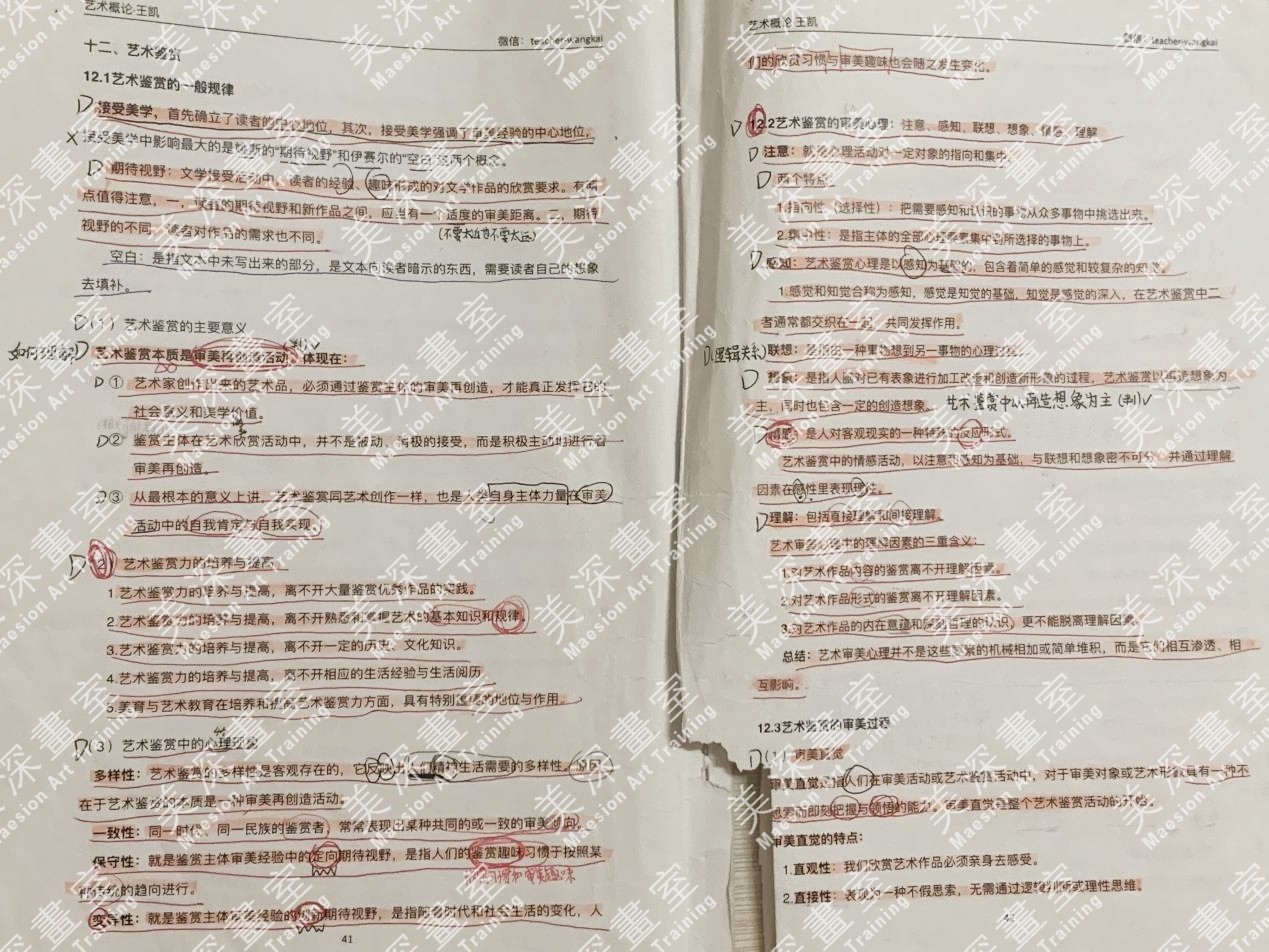 艺术概论·王凯
微信：teacher-wangkai
十二、艺术鉴赏
12.1艺术鉴赏的一般规律
接受美学，首先确立了读者的中心地位，其次，接受美学强调了审美经验的中心地位，
接受美学中影响最大的是姚斯的“期待视野”和伊赛尔的“空白”这两个概念。
期待视野：文学接受活动中，读者的经验、趣味形成的对文学作品的欣赏要求。有两
点值得注意，一，读者的期待视野和新作品之间，应当有一个适度的审美距离。二，期待
(不要太近也不要太远)
视野的不同，读者对作品的需求也不同。
空白：是指文本中未写出来的部分，是文本向读者暗示的东西，需要读者自己的想象
去填补。
（1）艺术鉴赏的主要意义
(判)√
如何理解
艺术鉴赏本质是审美再创造活动，体现在：
① 艺术家创作出来的艺术品，必须通过鉴赏主体的审美再创造，才能真正发挥它的
社会意义和美学价值。
② 鉴赏主体在艺术欣赏活动中，并不是被动、消极的接受，而是积极主动地进行着
审美再创造。
③ 从最根本的意义上讲，艺术鉴赏同艺术创作一样，也是人类自身主体力量在审美
活动中的自我肯定与自我实现。
2 艺术鉴赏力的培养与提高
1.艺术鉴赏力的培养与提高，离不开大量鉴赏优秀作品的实践。
2.艺术鉴赏力的培养与提高，离不开熟悉和掌握艺术的基本知识和规律。
3.艺术鉴赏力的培养与提高，离不开一定的历史、文化知识。
4.艺术鉴赏力的培养与提高，离不开相应的生活经验与生活阅历
5.美育与艺术教育在培养和提高艺术鉴赏力方面，具有特别重要的地位与作用。
（3）艺术鉴赏中的心理现象
多样性：艺术鉴赏的多样性是客观存在的，它反映出人们精神生活需要的多样性，原因
在于艺术鉴赏的本质是一种审美再创造活动。
一致性：同一时代、同一民族的鉴赏者，常常表现出某种共同的或一致的审美倾向。
保守性：就是鉴赏主体审美经验中的定向期待视野，是指人们的鉴赏趣味习惯于按照某
欣赏习惯和审美趣味
种传统的趋向进行。
变异性：就是鉴赏主体审美经验的创新期待视野，是指随着时代和社会生活的变化，人
41
艺术概论·王凯
微信：teacher-wangkai
们的欣赏习惯与审美趣味也会随之发生变化。
12.2艺术鉴赏的审美心理：注意、感知、联想、想象、情感、理解
注意：就是心理活动对一定对象的指向和集中。
两个特点：
1.指向性（选择性）：把需要感知和认识的事物从众多事物中挑选出来。
2.集中性：是指主体的全部心理要素集中在所选择的事物上。
感知：艺术鉴赏心理是以感知为基础的，包含着简单的感觉和较复杂的知觉。
1.感觉和知觉合称为感知，感觉是知觉的基础，知觉是感觉的深入，在艺术鉴赏中二
者通常都交织在一起，共同发挥作用。
(逻辑关系)联想：是指由一种事物想到另一事物的心理过程。
想象：是指人脑对已有表象进行加工改造和创造新形象的过程，艺术鉴赏以再造想象为
主，同时也包含一定的创造想象。
艺术鉴赏中以再造想象为主(判)√
情感：是人对客观现实的一种特殊的反应形式。
艺术鉴赏中的情感活动，以注意和感知为基础，与联想和想象密不可分，并通过理解
因素在感性里表现理性。
理解：包括直接理解和间接理解。
艺术审美心理中的理解因素的三重含义：
1.对艺术作品内容的鉴赏离不开理解因素。
2.对艺术作品形式的鉴赏离不开理解因素。
3.对艺术作品的内在意蕴和深刻哲理的认识，更不能脱离理解因素。
总结：艺术审美心理并不是这些要素的机械相加或简单堆积，而是它们相互渗透、相
互影响。
12.3艺术鉴赏的审美过程
（1）审美直觉
审美直觉是指人们在审美活动或艺术鉴赏活动中，对于审美对象或艺术形象具有一种不
思索而即刻把握与领悟的能力。审美直觉是整个艺术鉴赏活动的开始。
审美直觉的特点：
1.直观性：我们欣赏艺术作品必须亲身去感受。
2.直接性：表现为一种不假思索，无需通过逻辑判断或理性思维。
42
美深畫室
Maesion Art Training